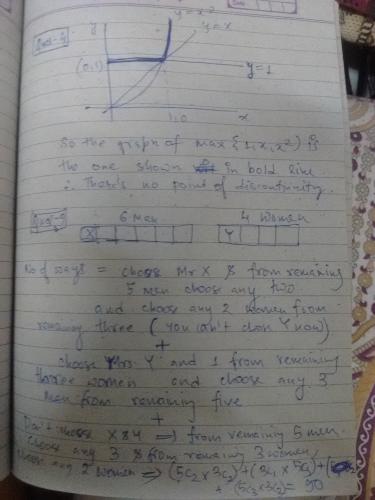 Date
Ques-4
y
y=x²
y=x
(0,1)
y=1
1,0
x
So the graph of max {1,x,x²} is
the one shown in bold line.
∴ There's no point of discontinuity.
6 Men 4 Women
X Y
No of ways = choose Mr X & from remaining
5 men choose any two
and choose any 2 women from
remaing three (you can't chose Y now)
+
choose Mrs. Y and 1 from remaining
three women and choose any 3
men from remaining five
+
Don't choose X & Y ⇒ from remaining 5 men
choose any 3 & from remaing 3 women,
choose any 2 women ⇒ (5C₂ × 3C₂) + (3C₁ × 5C₃) +
+ (5C₃ × 3C₂) = 90